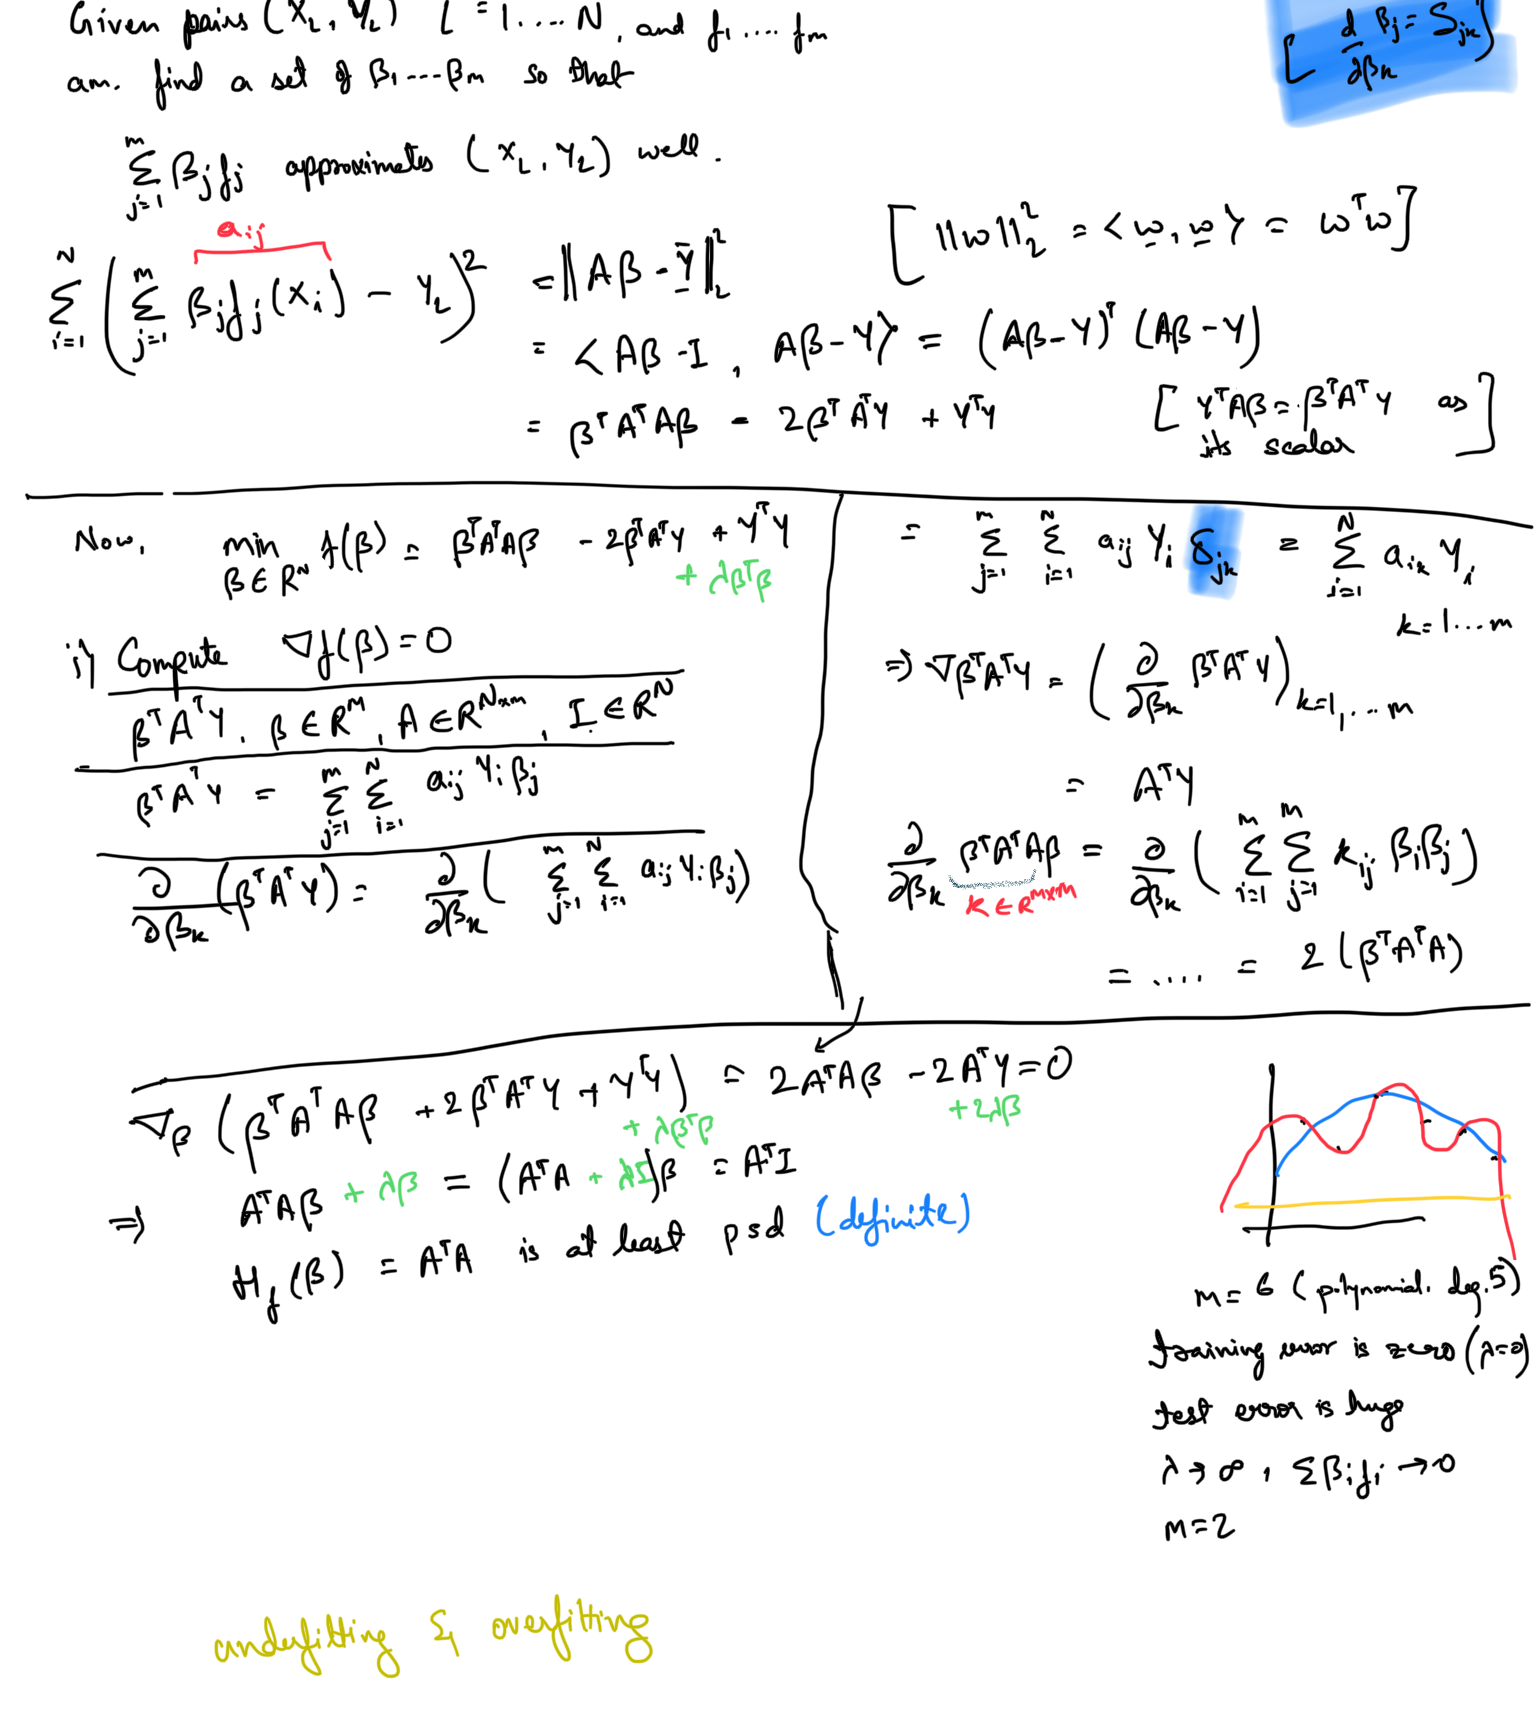 Given pairs (X_L, Y_L) L = 1....N, and f₁....fₘ
[ d/∂βₖ βⱼ = S_jk ]
am. find a set of β₁---βₘ so that
∑_{j=1}^{m} βⱼfⱼ approximates (X_L, Y_L) well.
[ ||w||₂² = <w, w> = wᵀw ]
a_ij
∑_{i=1}^{N} ( ∑_{j=1}^{m} βⱼfⱼ(Xᵢ) - Y_L )² = || Aβ - Y ||₂²
= < Aβ - I, Aβ - Y > = (Aβ - Y)ᵀ (Aβ - Y)
= βᵀAᵀAβ - 2βᵀAᵀY + YᵀY
[ YᵀAβ = βᵀAᵀY as its scalar ]
Now, min_{β∈Rᴺ} f(β) = βᵀAᵀAβ - 2βᵀAᵀY + YᵀY
+ λβᵀβ
i) Compute ∇f(β) = 0
βᵀAᵀY, β∈Rᴹ, A∈Rᴺˣᵐ, I∈Rᴺ
βᵀAᵀY = ∑_{j=1}^{m} ∑_{i=1}^{N} a_ij Yᵢ βⱼ
∂/∂βₖ (βᵀAᵀY) = ∂/∂βₖ ( ∑_{j=1}^{m} ∑_{i=1}^{N} a_ij Yᵢ βⱼ )
= ∑_{j=1}^{m} ∑_{i=1}^{N} a_ij Yᵢ δ_jk = ∑_{i=1}^{N} a_ik Yᵢ
k = 1...m
⇒ ∇βᵀAᵀY = ( ∂/∂βₖ βᵀAᵀY )_{k=1,...m}
= AᵀY
∂/∂βₖ βᵀAᵀAβ = ∂/∂βₖ ( ∑_{i=1}^{m} ∑_{j=1}^{m} k_ij βᵢβⱼ )
K∈Rᵐˣᵐ
= .... = 2(βᵀAᵀA)
∇_β (βᵀAᵀAβ + 2βᵀAᵀY + YᵀY) = 2AᵀAβ - 2AᵀY = 0
+ λβᵀβ
+ 2λβ
⇒ AᵀAβ + λβ = (AᵀA + λI)β = AᵀI
H_f(β) = AᵀA is at least psd (definite)
m = 6 (polynomial. deg. 5)
training error is zero (λ=0)
test error is huge
λ → ∞, ∑βᵢfᵢ → 0
m = 2
underfitting & overfitting